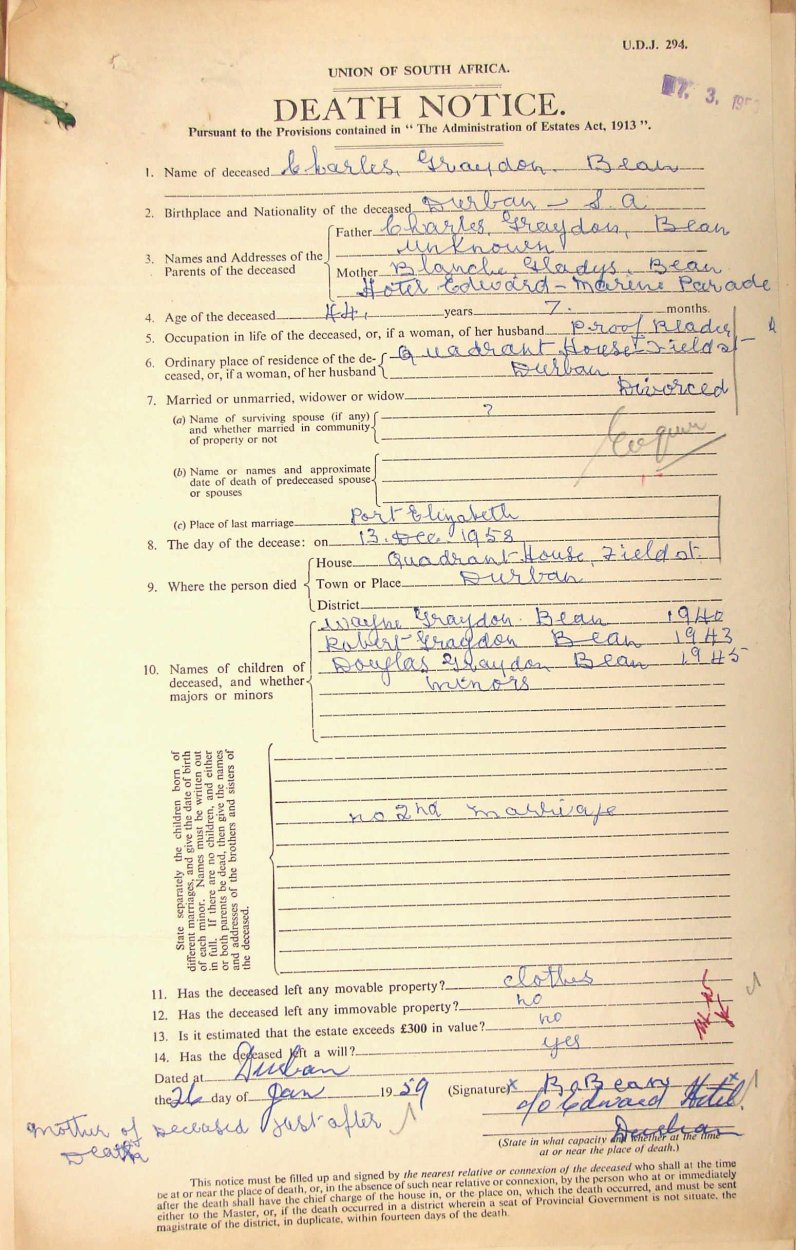 U.D.J. 294.
UNION OF SOUTH AFRICA.
7. 3. 195
DEATH NOTICE.
Pursuant to the Provisions contained in "The Administration of Estates Act, 1913".
1. Name of deceased Charles, Graydon. Bean
2. Birthplace and Nationality of the deceased Durban - S.A.
3. Names and Addresses of the Parents of the deceased
Father Charles, Graydon, Bean
unknown
Mother Blanche, Gladys, Bean
Hotel Edward - Marine Parade
4. Age of the deceased 44, years 7. months.
5. Occupation in life of the deceased, or, if a woman, of her husband Proof
6. Ordinary place of residence of the de-
ceased, or, if a woman, of her husband
Quadrant House Field st
Durban
7. Married or unmarried, widower or widow Divorced
(a) Name of surviving spouse (if any) ?
and whether married in community
of property or not
(b) Name or names and approximate
date of death of predeceased spouse
or spouses
(c) Place of last marriage Port Elizabeth
8. The day of the decease: on 13. Dec. 1958
9. Where the person died
House Quadrant House, Field st.
Town or Place Durban
District
10. Names of children of
deceased, and whether
majors or minors
Wayne Graydon. Bean 1940
Robert Graydon Bean 1943
Douglas Graydon Bean 1945
minors
State separately the children born of
different marriages, and give the date of birth
of each minor. Names must be written out
in full. If there are no children, and either
or both parents be dead, then give the names
and addresses of the brothers and sisters of
the deceased.
no 2nd marriage
11. Has the deceased left any movable property? clothes
12. Has the deceased left any immovable property? no
13. Is it estimated that the estate exceeds £300 in value? no
14. Has the deceased left a will? yes
Dated at Durban
the 26 day of Jan 1959 (Signature) x B. Bean x
c/o Edward Hotel.
Durban
Mother of Deceased just after
Death
(State in what capacity and whether at the time
at or near the place of death.)
This notice must be filled up and signed by the nearest relative or connexion of the deceased who shall at the time
be at or near the place of death, or, in the absence of such near relative or connexion, by the person who at or immediately
after the death shall have the chief charge of the house in, or the place on, which the death occurred, and must be sent
either to the Master, or, if the death occurred in a district wherein a seat of Provincial Government is not situate, the
magistrate of the district, in duplicate, within fourteen days of the death.